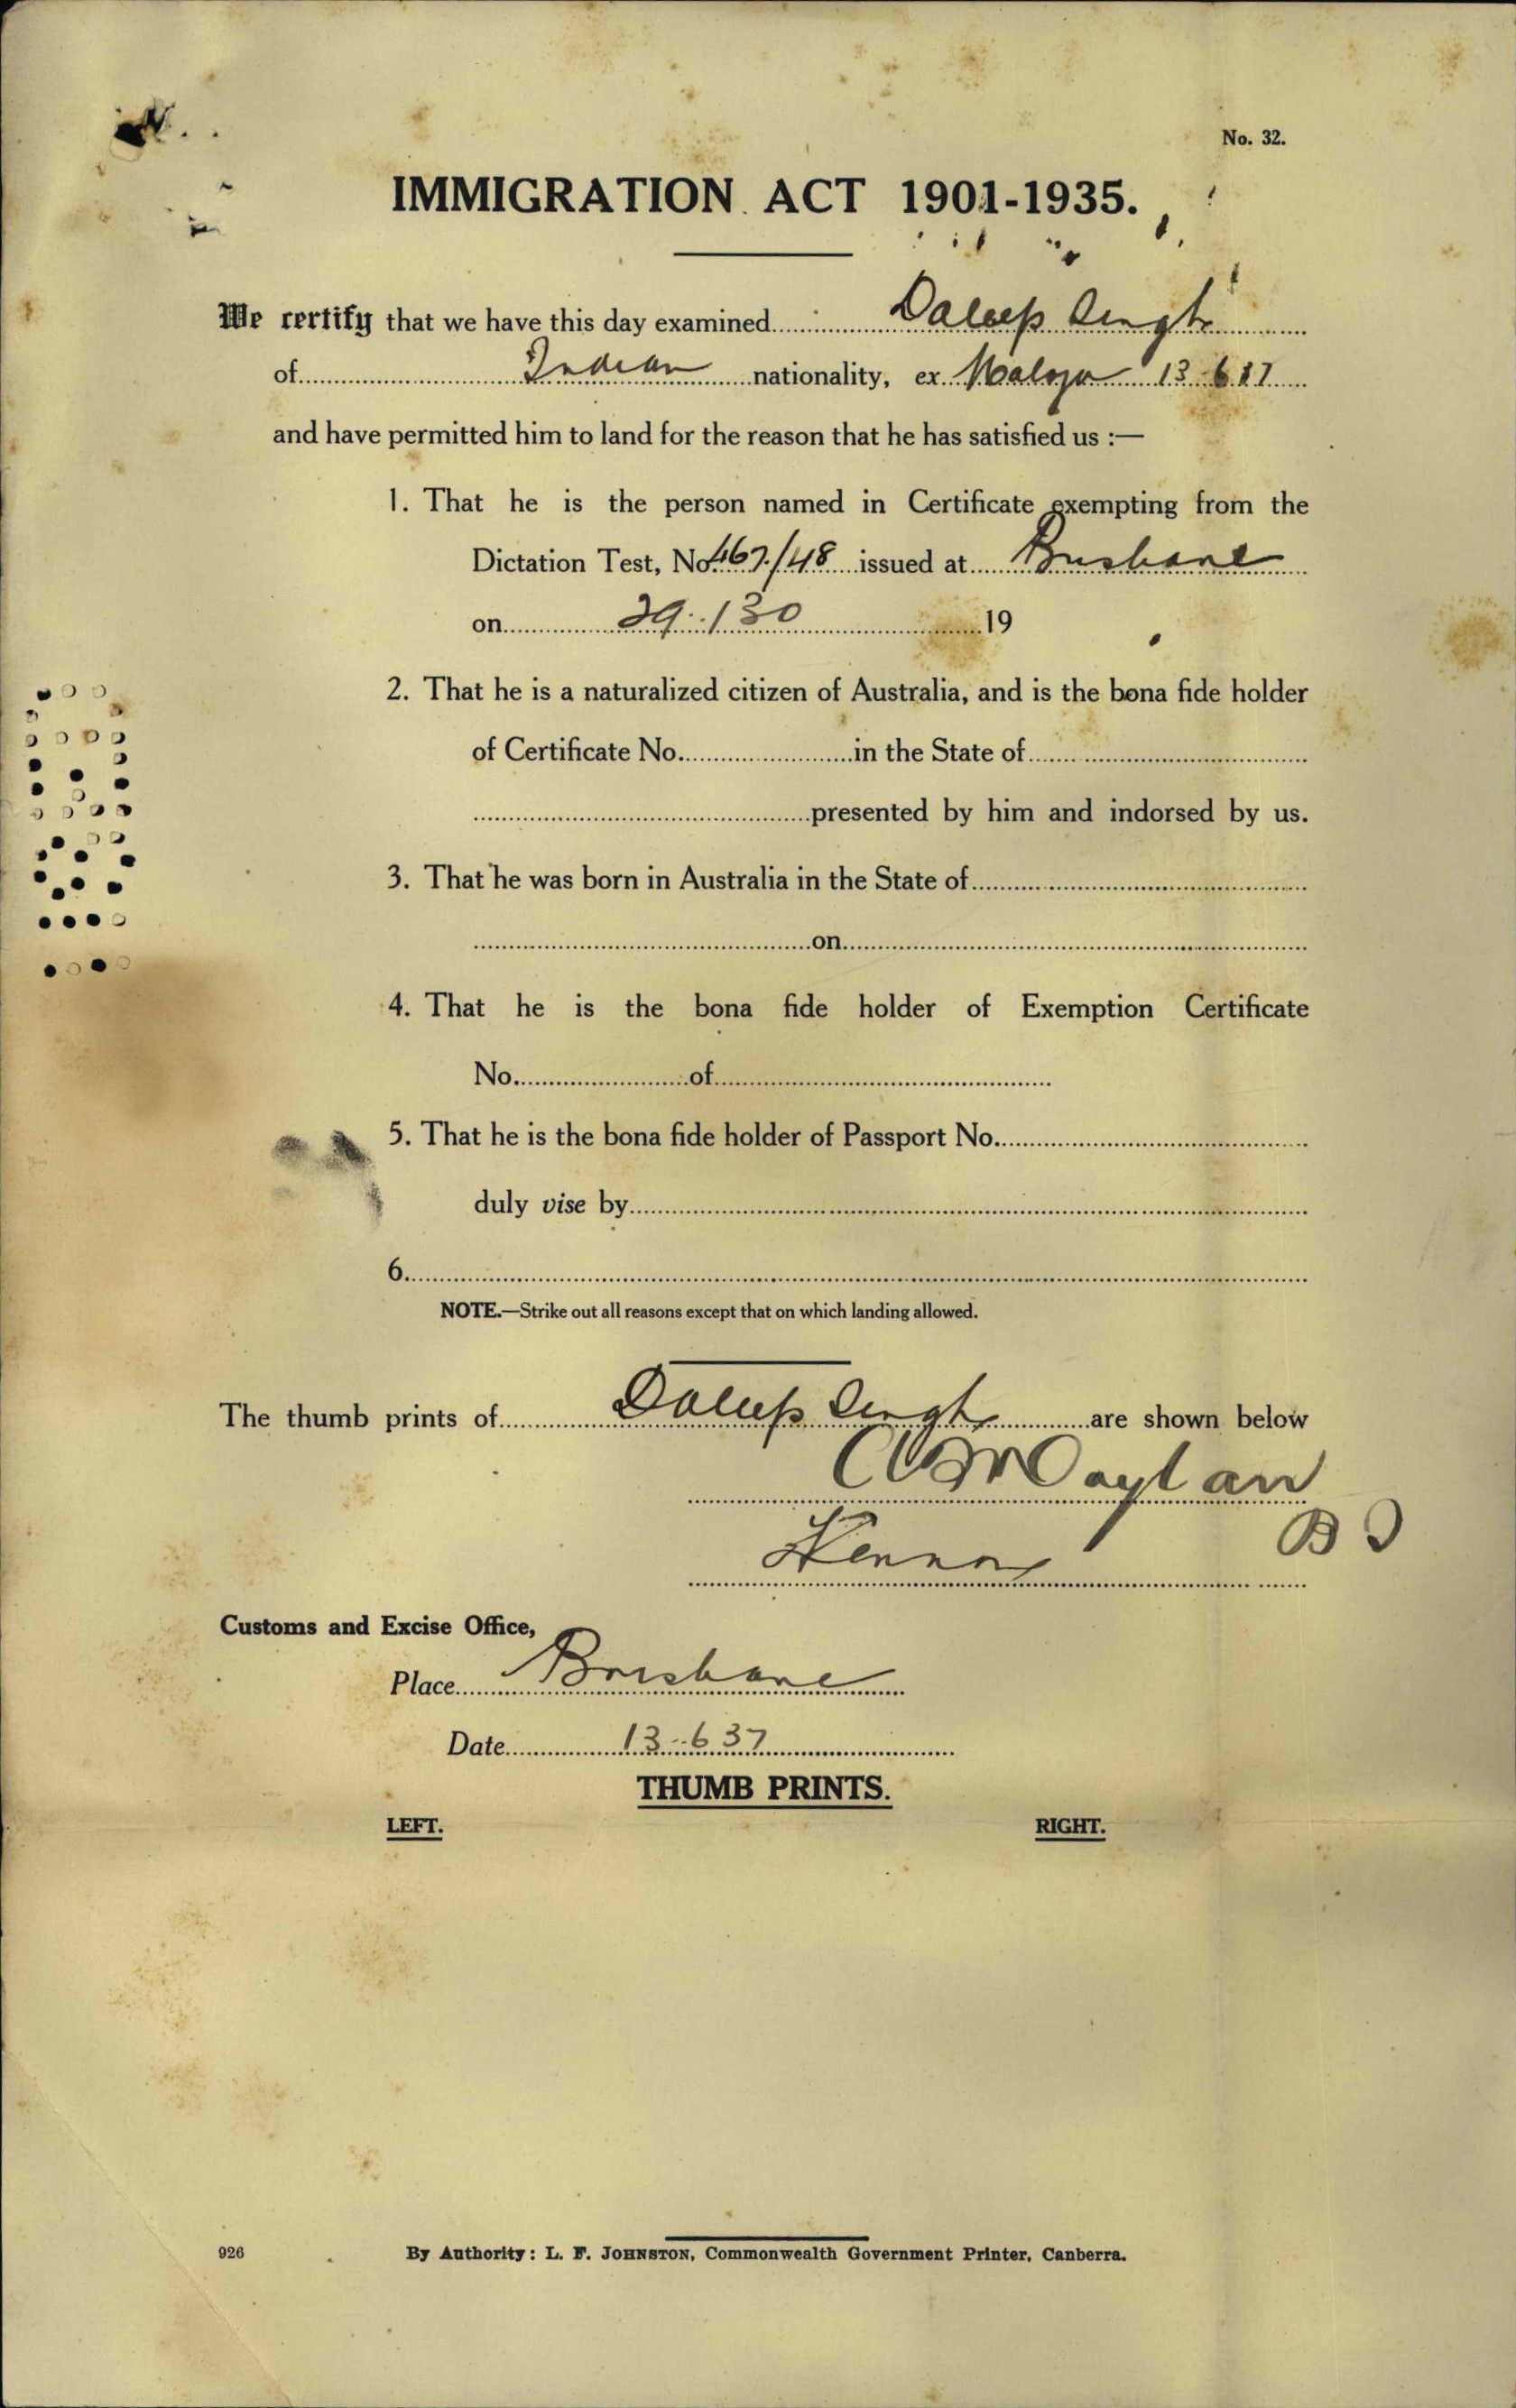 No. 32.
IMMIGRATION ACT 1901-1935.
We certify that we have this day examined Daleep Singh
of Indian nationality, ex Maloja 13.6.37
and have permitted him to land for the reason that he has satisfied us :—
1. That he is the person named in Certificate exempting from the
Dictation Test, No. 467/48 issued at Brisbane
on 29.1 30 19
2. That he is a naturalized citizen of Australia, and is the bona fide holder
of Certificate No. in the State of
presented by him and indorsed by us.
3. That he was born in Australia in the State of
on
4. That he is the bona fide holder of Exemption Certificate
No. of
5. That he is the bona fide holder of Passport No.
duly vise by
6.
NOTE.—Strike out all reasons except that on which landing allowed.
The thumb prints of Daleep Singh are shown below
B I
Customs and Excise Office,
Place Brisbane
Date 13.6 37
THUMB PRINTS.
LEFT. RIGHT.
926 By Authority: L. F. JOHNSTON, Commonwealth Government Printer, Canberra.